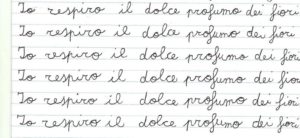 Io respiro il dolce profumo dei fiori
Io respiro il dolce profumo dei fiori
Io respiro il dolce profumo dei fiori
Io respiro il dolce profumo dei fiori
Io respiro il dolce profumo dei fiori
Io respiro il dolce profumo dei fiori